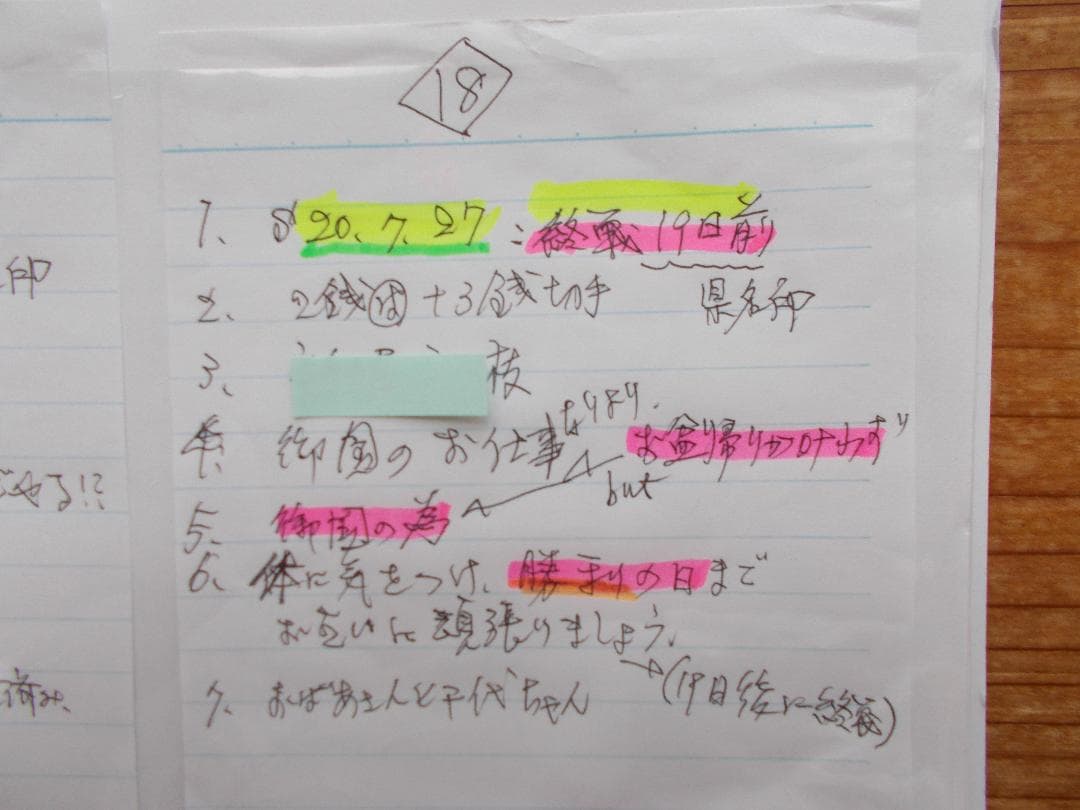 18
1、 S20.7.27：終戦19日前
2、 2銭は+3銭切手 県名印
3、 枝
4、 御国のお仕事なりより、お盆帰りかなわず
but
5、 御国の為
6、 体に気をつけ、勝利の日まで
お互いに頑張りましょう。
→(19日後に終戦)
7、 おばあさんと千代ちゃん
印
やる!?
済み、